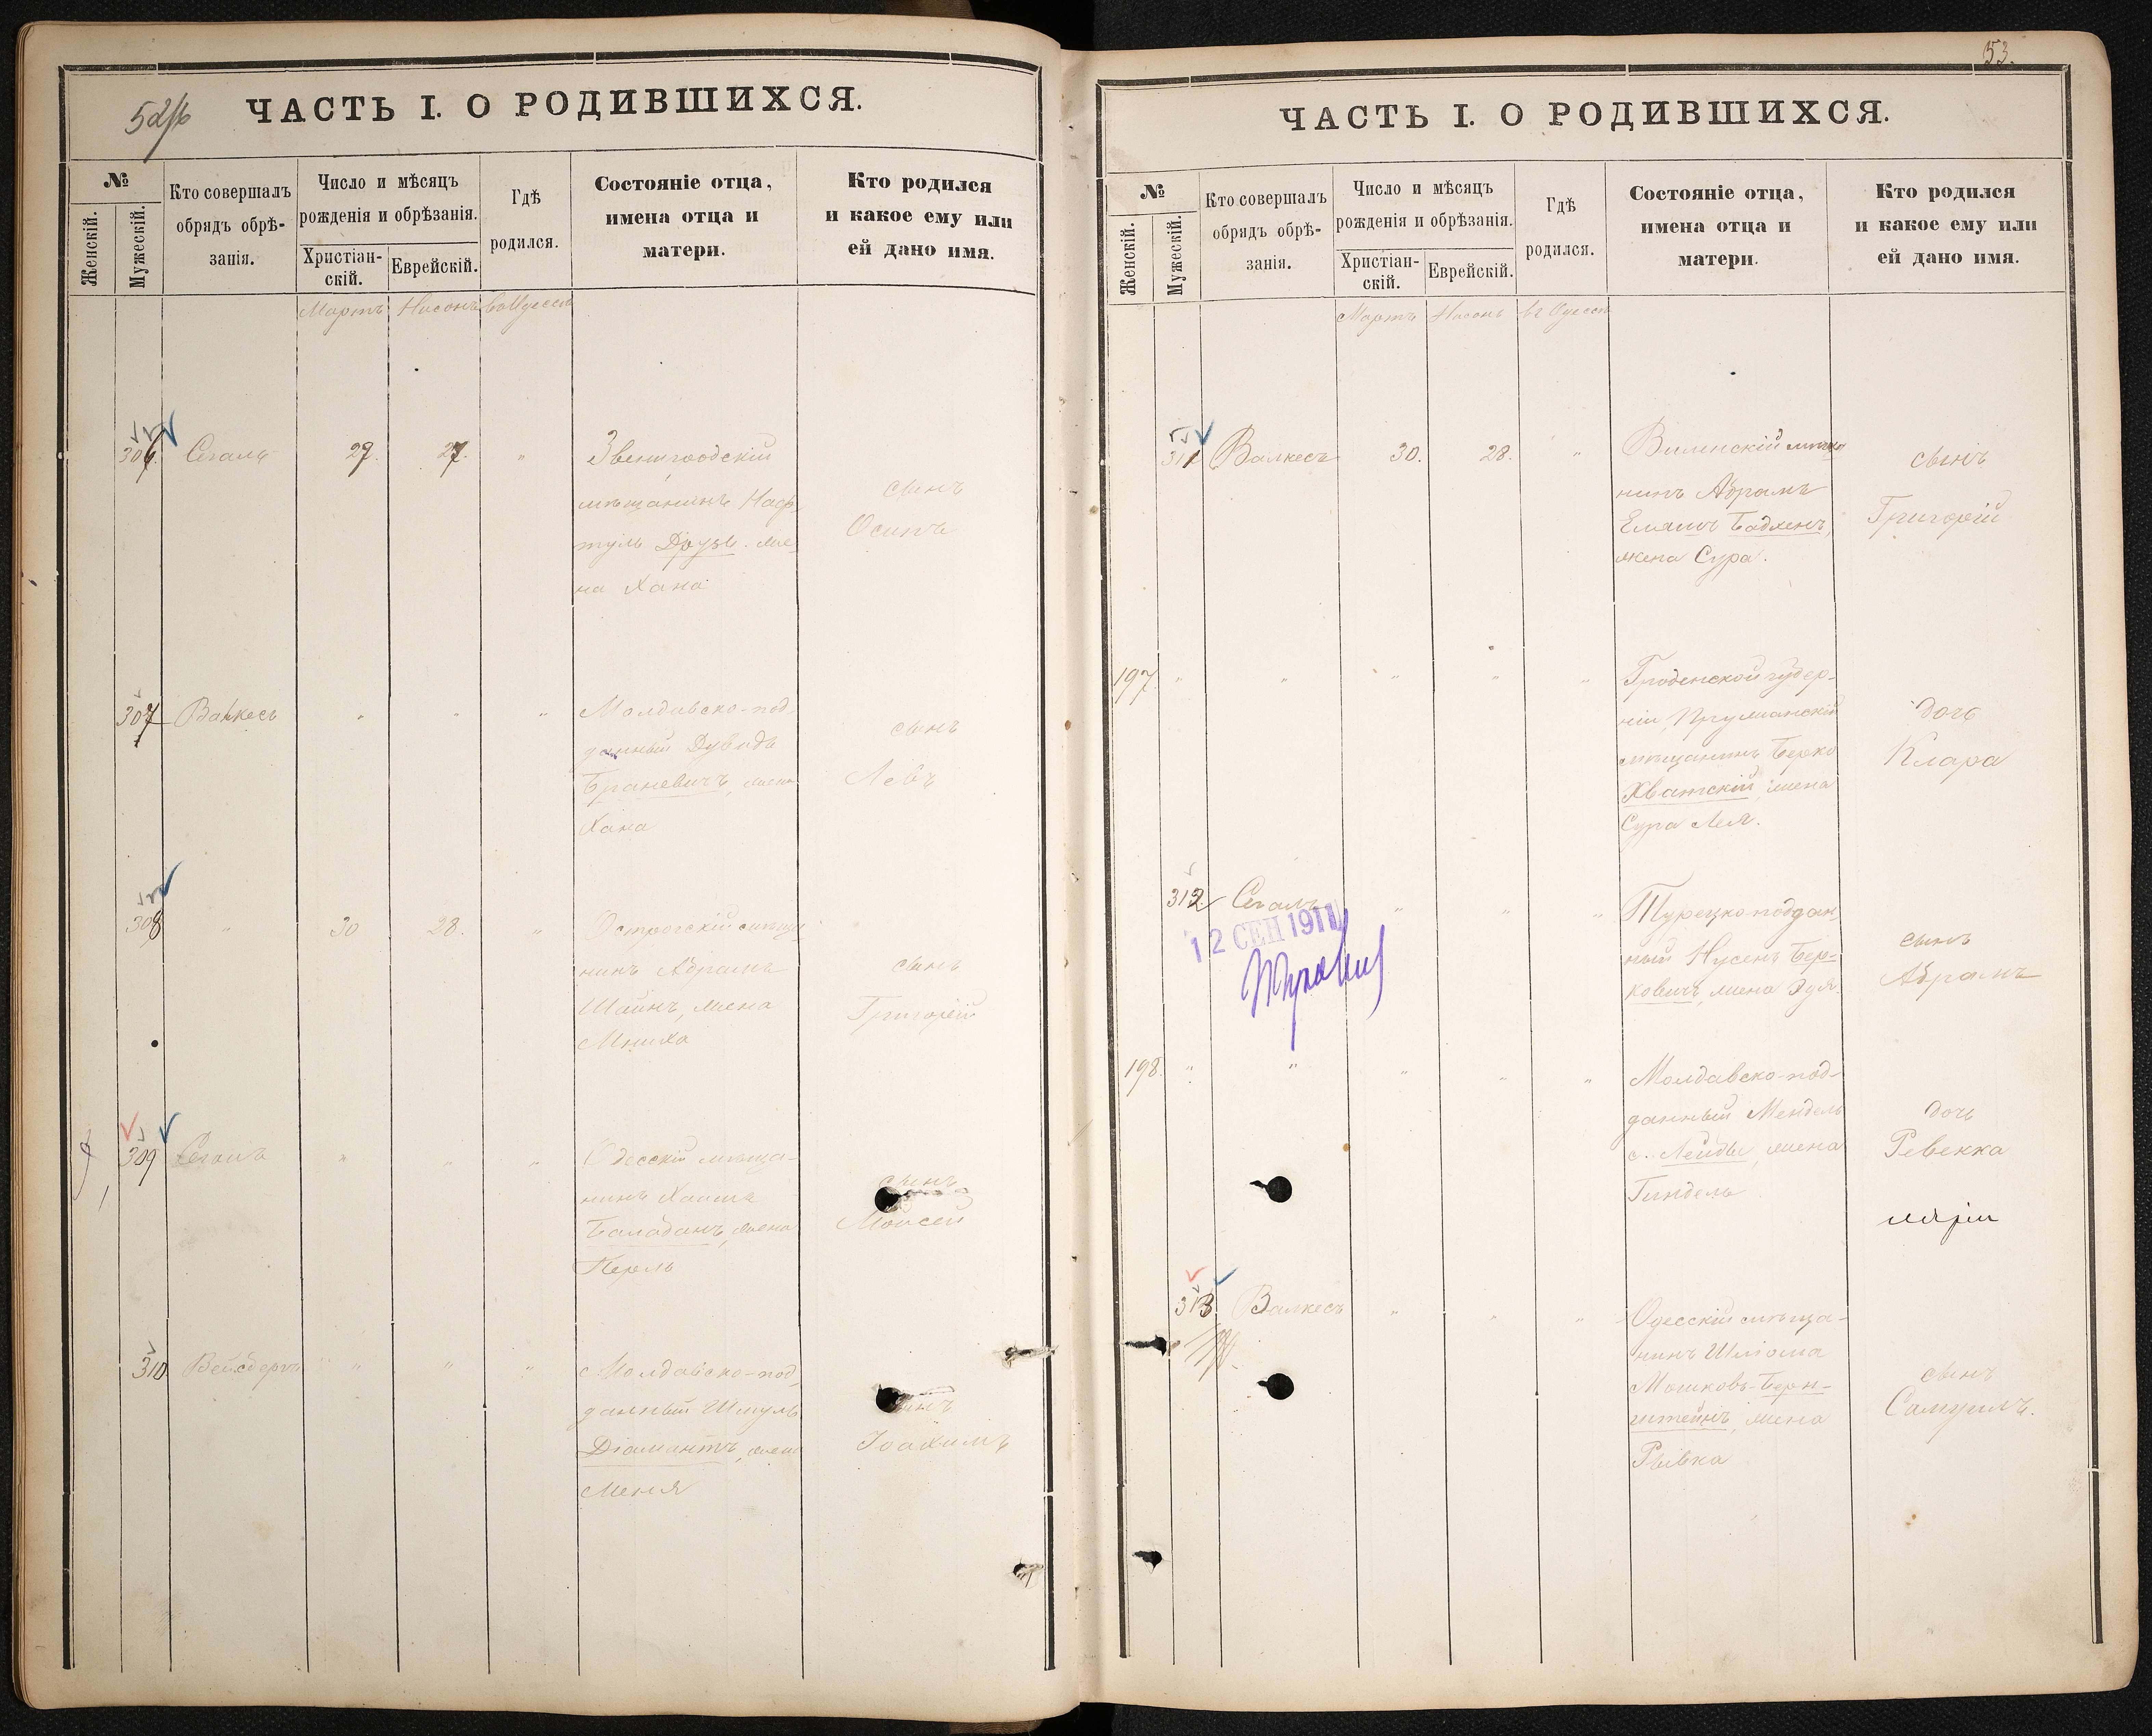 52/б
ЧАСТЬ I. О РОДИВШИХСЯ.
№
Женскій.
Мужескій.
Кто совершалъ
обрядъ обрѣ-
занія.
Число и мѣсяцъ
рожденія и обрѣзанія.
Христіан-
скій.
Еврейскій.
Гдѣ
родился.
Состояніе отца,
имена отца и
матери.
Кто родился
и какое ему или
ей дано имя.
Мартъ Нисонъ
306 Сегалъ 27. 27. " Звенигородскій
мѣщанинъ Наф-
туль Друзь. же-
на Хана
сынъ
Осипъ
307 Валкесъ " " " Молдавско-под-
данный Дувидъ
Браневичъ, жена
Хана
сынъ
Левъ
308 " 30 28. " Острогскій мѣща-
нинъ Абрамъ
Шаинъ, жена
Мниха
сынъ
Григорій
309 Сегалъ " " " Одесскій мѣща-
нинъ Хаимъ
Балабанъ, жена
Перль
сынъ
Моисей
310 Вейсбергъ " " " Молдавско-под-
данный Шмуль
Діамантъ, жена
Меня
сынъ
Іоахимъ
53.
ЧАСТЬ I. О РОДИВШИХСЯ.
№
Женскій.
Мужескій.
Кто совершалъ
обрядъ обрѣ-
занія.
Число и мѣсяцъ
рожденія и обрѣзанія.
Христіан-
скій.
Еврейскій.
Гдѣ
родился.
Состояніе отца,
имена отца и
матери.
Кто родился
и какое ему или
ей дано имя.
Мартъ Нисонъ въ Одессѣ
311 Валкесъ 30. 28. " Виленскій мѣща-
нинъ Абрамъ
Бадхенъ,
жена Сура.
сынъ
Григорій
197. " " " " " Гроденской губер-
ніи
мѣщанинъ Берко
Хватскій, жена
Сура Лея.
дочь
Клара
312 Сегалъ " " " Турецко-поддан-
ный Нусенъ Бер-
ковичъ, жена Эдя.
сынъ
Абрамъ
12 СЕН 1911
198. " " " " " Молдавско-под-
данный Мендель
с. Лейбы, жена
Гиндель
дочь
Ревекка
313 Валкесъ " " " Одесскій мѣща-
нинъ Шлиома
Мошковъ-Берн-
штейнъ, жена
Рывка
сынъ
Самуилъ.